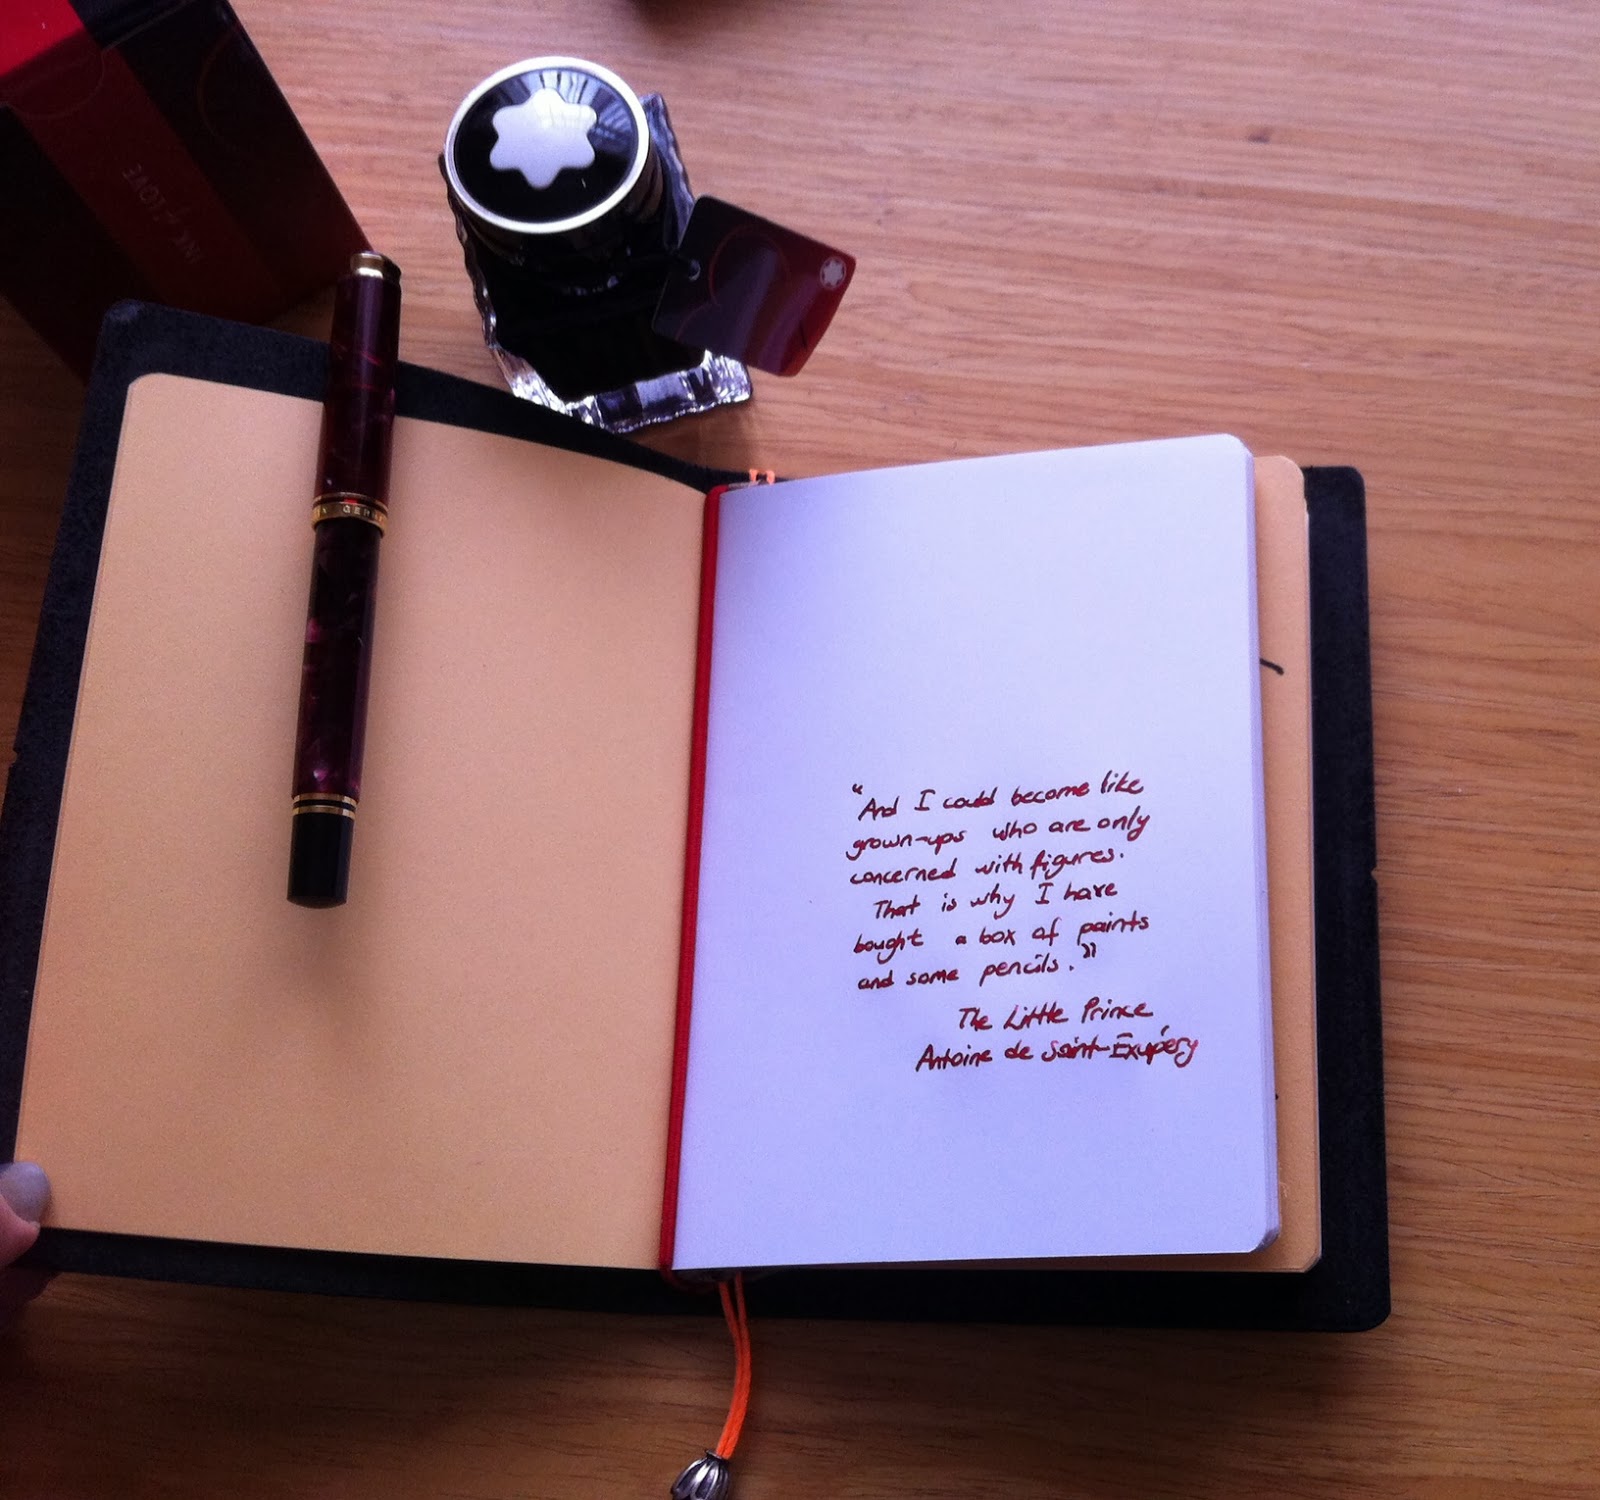 INK of LOVE
GERM
"And I could become like
grown-ups who are only
concerned with figures.
That is why I have
bought a box of paints
and some pencils."
The Little Prince
Antoine de Saint-Exupéry